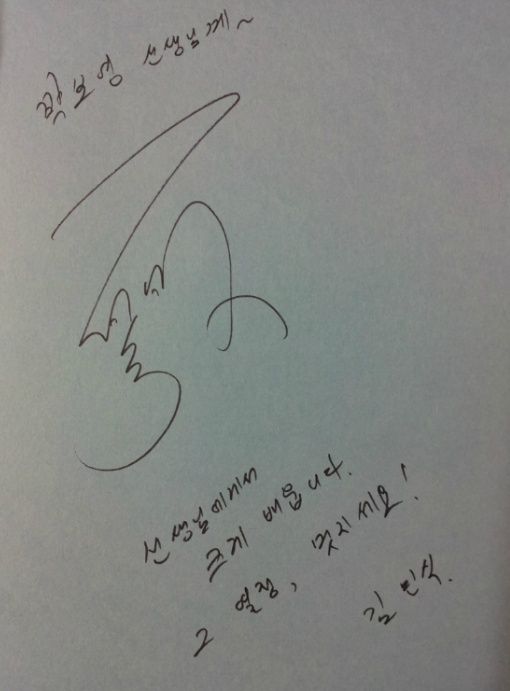 보영 선생님께~
선생님에게서
크게 배웁니다.
그 열정, 멋지세요!
김민식.